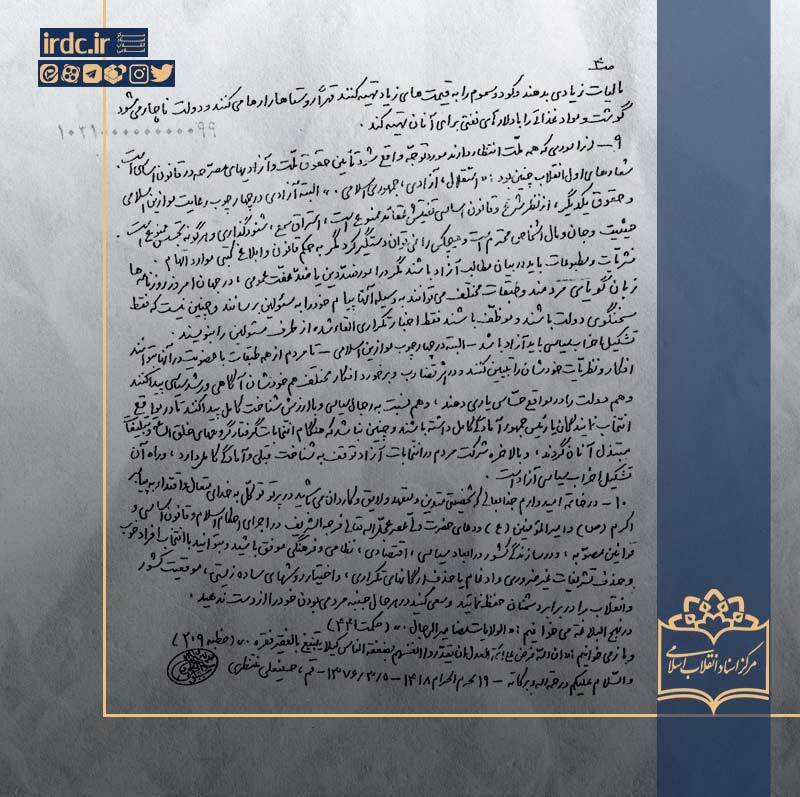 irdc.ir
مرکز
اسناد
انقلاب
اسلامی
ص۴
مالیات زیادی بدهند و کود و سموم را به قیمت های زیاد تهیه کنند قهراً روستاها را رها می کنند و دولت ناچار می شود
گوشت و مواد غذائی را با دلارهای نفتی برای آنان تهیه کند.
۱۰۳۱۰۰۰۰۰۰۰۰۰۹۹
۹ - از اموری که همه ملت انتظار دارند مورد توجه واقع شود تأمین حقوق ملت و آزادیهای مصرّحه در قانون اساسی است.
شعارهای اول انقلاب چنین بود: «استقلال، آزادی، جمهوری اسلامی.» البته آزادی در چهارچوب رعایت موازین اسلامی
و حقوق یکدیگر، از نظر شرع و قانون اساسی تفتیش عقائد ممنوع است، استراق سمع، شنود گذاری و هرگونه تجسس ممنوع است.
حیثیت و جان و مال اشخاص محترم است و هیچکس را نمی توان دستگیر کرد مگر به حکم قانون و ابلاغ کتبی موارد اتهام.
نشریات و مطبوعات باید در بیان مطالب آزاد باشند مگر در امور ضد دین یا ضد عفت عمومی، در جهان امروز روزنامه ها
زبان گویای مردمند و طبقات مختلف می توانند به وسیله آنها پیام خود را به مسئولین برسانند و چنین نیست که فقط
سخنگوی دولت باشند و موظف باشند فقط اخبار تکراری القاء شده از طرف مسئولین را بنویسند.
تشکیل احزاب سیاسی باید آزاد باشد - البته در چهارچوب موازین اسلامی - تا مردم از همه طبقات با عضویت در آنها بتوانند
افکار و نظریات خودشان را تبیین کنند و در اثر تضارب و برخورد افکار مختلف هم خودشان آگاهی و رشد سیاسی پیدا کنند
و هم دولت را در مواقع حساس یاری دهند، و هم نسبت به رجال سیاسی و با ارزش شناخت کامل پیدا کنند تا در مواقع
انتخاب نمایندگان یا رئیس جمهور آمادگی کامل داشته باشند و چنین نباشد که هنگام انتخابات گرفتار گروههای خلق الساعه و تبلیغات
مبتذل آنان گردند، و بالاخره شرکت مردم در انتخابات آزاد توقف به شناخت قبلی و آمادگی کامل دارد، و راه آن
تشکیل احزاب سیاسی آزاد است.
۱۰ - در خاتمه امیدوارم جنابعالی که شخصیتی متدین و متعهد و لایق و کاردان می باشید در پرتو توکل به خدای متعال و اقتداء به پیامبر
اکرم (ص) و امیرالمؤمنین (ع) و دعای حضرت ولی عصر عجل الله تعالی فرجه الشریف در اجرای احکام اسلام و قانون اساسی و
قوانین مصوبه، و در سازندگی کشور در ابعاد سیاسی، اقتصادی، نظامی و فرهنگی موفق باشید و بتوانید با انتخاب افراد خوب
و حذف تشریفات غیر ضروری و ادغام یا حذف ارگانهای تکراری، و اختیار روشهای ساده زیستی، موقعیت کشور
و انقلاب را در برابر دشمنان حفظ نمائید و سعی کنید در هر حال جنبه مردمی بودن خود را از دست ندهید.
در نهج البلاغه می خوانیم: «الولایات مضامیر الرجال.» (حکمت ۴۴۱)
و باز می خوانیم: «ان الله فرض علی ائمة العدل ان یقدّروا انفسهم بضعفة الناس کیلا یتبیّغ بالفقیر فقره.» (خطبه ۲۰۹)
والسلام علیکم و رحمة الله و برکاته - ۱۹ محرم الحرام ۱۴۱۸ - ۱۳۷۶/۳/۵ - قم، حسینعلی منتظری
مرکز اسناد انقلاب اسلامی